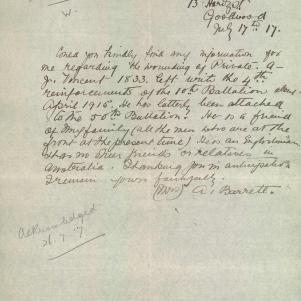 W.
13 Hartzel
Goodwood
July 17th 17.
Could you kindly find any information for
me regarding the wounding of Private. A-
J. Vincent 1833. Left with the 4th
reinforcements of the 10th Battalion
April 1915. He has latterly been attached
to the 50th Battalion. He is a friend
of my family (all the men who are at the
front at the present time) He is an Englishman
& has no dear friends or relatives in
Australia. Thanking you in anticipation
I remain yours faithfully.
(Mrs) A. Barrett.
Acknowledged
26.7.17